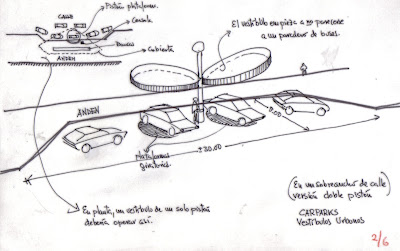 CALLE
Pistón plataforma.
Consola
Bancas
Cubierta
ANDEN
El vestíbulo empieza a no parecerse
a un paradero de buses.
ANDEN
8.00
Plataformas
giratorias.
± 30.00
En planta, un vestíbulo de un solo pistón
debería operar así.
(En un sobreancho de calle)
versión doble pistón
CARPARKS
Vestíbulos Urbanos
2/6